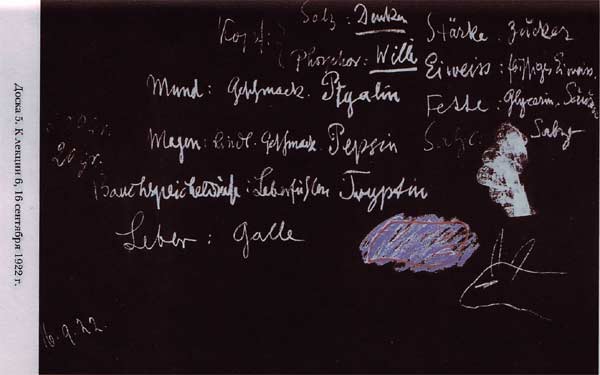 Доска 5. К лекции 6, 16 сентября 1922 г.
Kopf: { Salz: Denken
Phosphor: Wille
Mund: Geschmack. Ptyalin
Magen: Geschmack. Pepsin
Bauchspeicheldrüse: Trypsin
Leber: Galle
Stärke. Zucker
Eiweiss: flüssiges Eiweiss.
Fette: Glycerin. Säuren
Salze Salze
20 gr.
16.9.22.